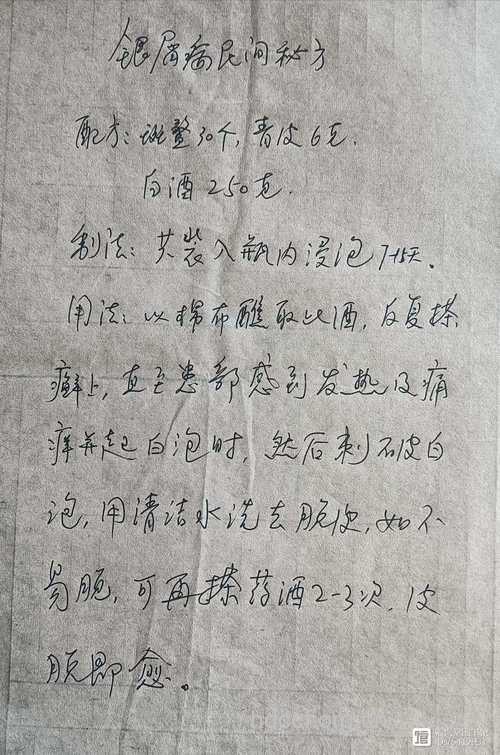 银屑病民间秘方
配方：斑蝥30个，青皮6克.
白酒250克.
制法：共装入瓶内浸泡7-15天.
用法：以棉布蘸取此酒，反复搽
癣上，直至患部感到发热及痛
痒并起白泡时，然后刺破白
泡，用清洁水洗去脱皮，如不
易脱，可再搽药酒2-3次，皮
脱即愈。